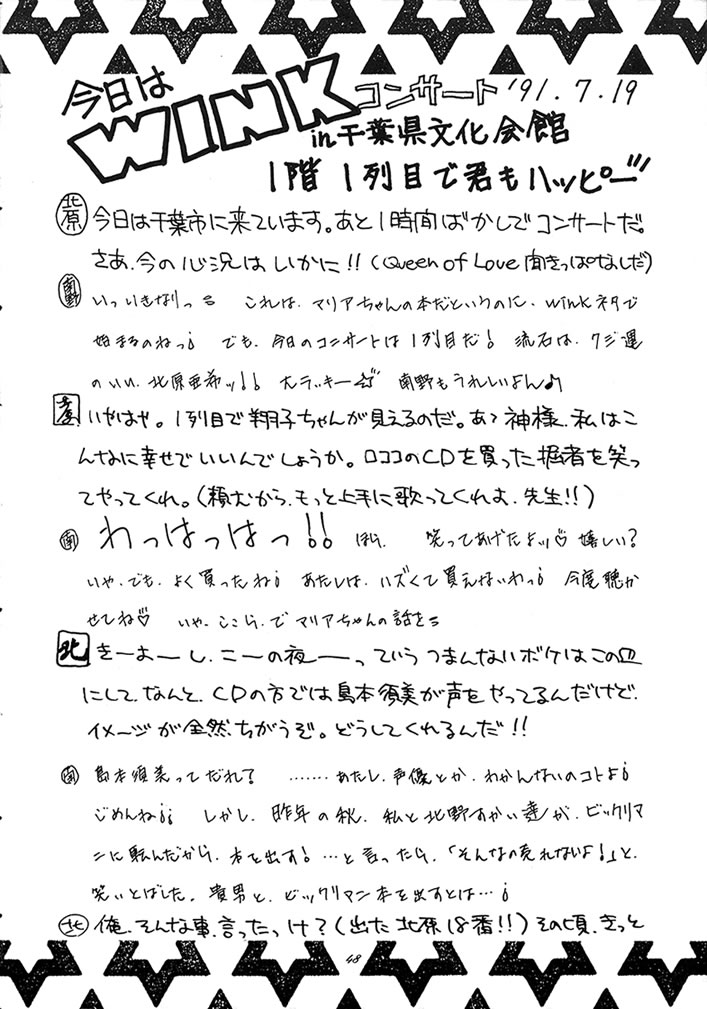 今日は WINK コンサート '91.7.19
in 千葉県文化会館
1階1列目で君もハッピー
北原 今日は千葉市に来ています。あと1時間ばかしでコンサートだ。
さあ、今の心況はいかに!!(Queen of Love 聞きっぱなしだ)
南野 いっいきなりっ これは、マリアちゃんの本だというのに、winkネタで
始まるのねっ でも、今日のコンサートは1列目だ! 流石は、クジ運
のいい、北原亜希ッ!! 大ラッキー☆ 南野もうれしいよん♪
いやはや。1列目で翔子ちゃんが見えるのだ。あゝ神様、私はこ
んなに幸せでいいんでしょうか。ロココのCDを買った掘者を笑っ
てやってくれ。(頼むから、もっと上手に歌ってくれよ、先生!!)
南 わっはっはっ!! ほら、笑ってあげたよッ♡ 嬉しい?
いや、でも、よく買ったね! あたしは、ハズくて買えないわっ! 今度聴か
せてね♡ いや、ここら、でマリアちゃんの話を
北 きーよーし、こーの夜ーっていうつまんないボケはこの皿
にして、なんと、CDの方では島本須美が声をやってるんだけど、
イメージが全然、ちがうぞ。どうしてくれるんだ!!
南 島本須美ってだれ? ……あたし、声優とか、わかんないのコトよ!
ごめんね!! しかし、昨年の秋、私と北野すかい達が、ビックリマ
ンに転んだから、本を出す!…と言ったら、「そんなの売れないよ!」と、
笑いとばした。貴男と、ビックリマン本を出すとは…!
北 俺、そんな事、言ったっけ?(出た北原18番!!)その頃、きっと
48